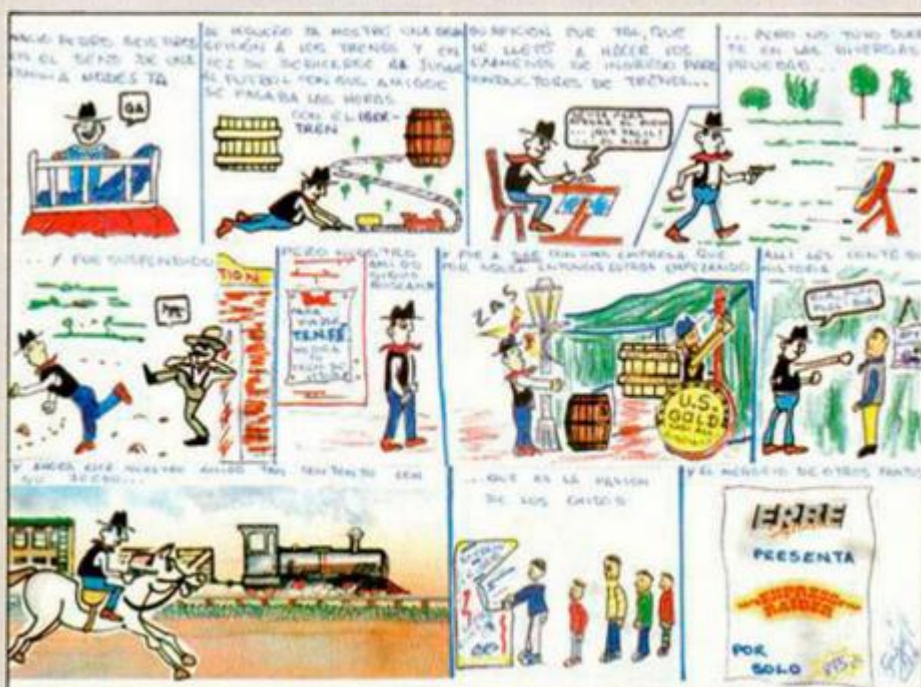 NACIO PEDRO SEIS TIROS
EN EL SENO DE UNA
FAMILIA MODESTA
GA
DE PEQUEÑO YA MOSTRÓ UNA GRAN
AFICIÓN A LOS TRENES Y EN
VEZ DE DEDICARSE A JUGAR
AL FUTBOL CON SUS AMIGOS
SE PASABA LAS HORAS
CON EL IBER-
TREN
SU AFICION FUE TAL, QUE
LE LLEVÓ A HACER LOS
EXAMENES DE INGRESO PARA
CONDUCTORES DE TRENES...
... PERO NO TUVO SUER-
TE EN LAS DIVERSAS
PRUEBAS...
... Y FUE SUSPENDIDO
TION
PERO NUESTRO
AMIGO
SIGUIÓ
BUSCANDO
PARA
VIAJAR
TENFE
MEJORA
TU
TREN DE
Y FUE A DAR CON UNA EMPRESA QUE
POR AQUEL ENTONCES ESTABA EMPEZANDO
ZAS
U.S.
GOLD
ALLI LES CONTÓ SU
HISTORIA
Y AHORA VIVE NUESTRO AMIGO TAN CONTENTO CON
SU JUEGO...
...QUE ES LA PASION
DE LOS CHICOS
Y EL NEGOCIO DE OTROS TANTOS
ERBE
PRESENTA
EXPRESS
RAIDER
POR
SOLO